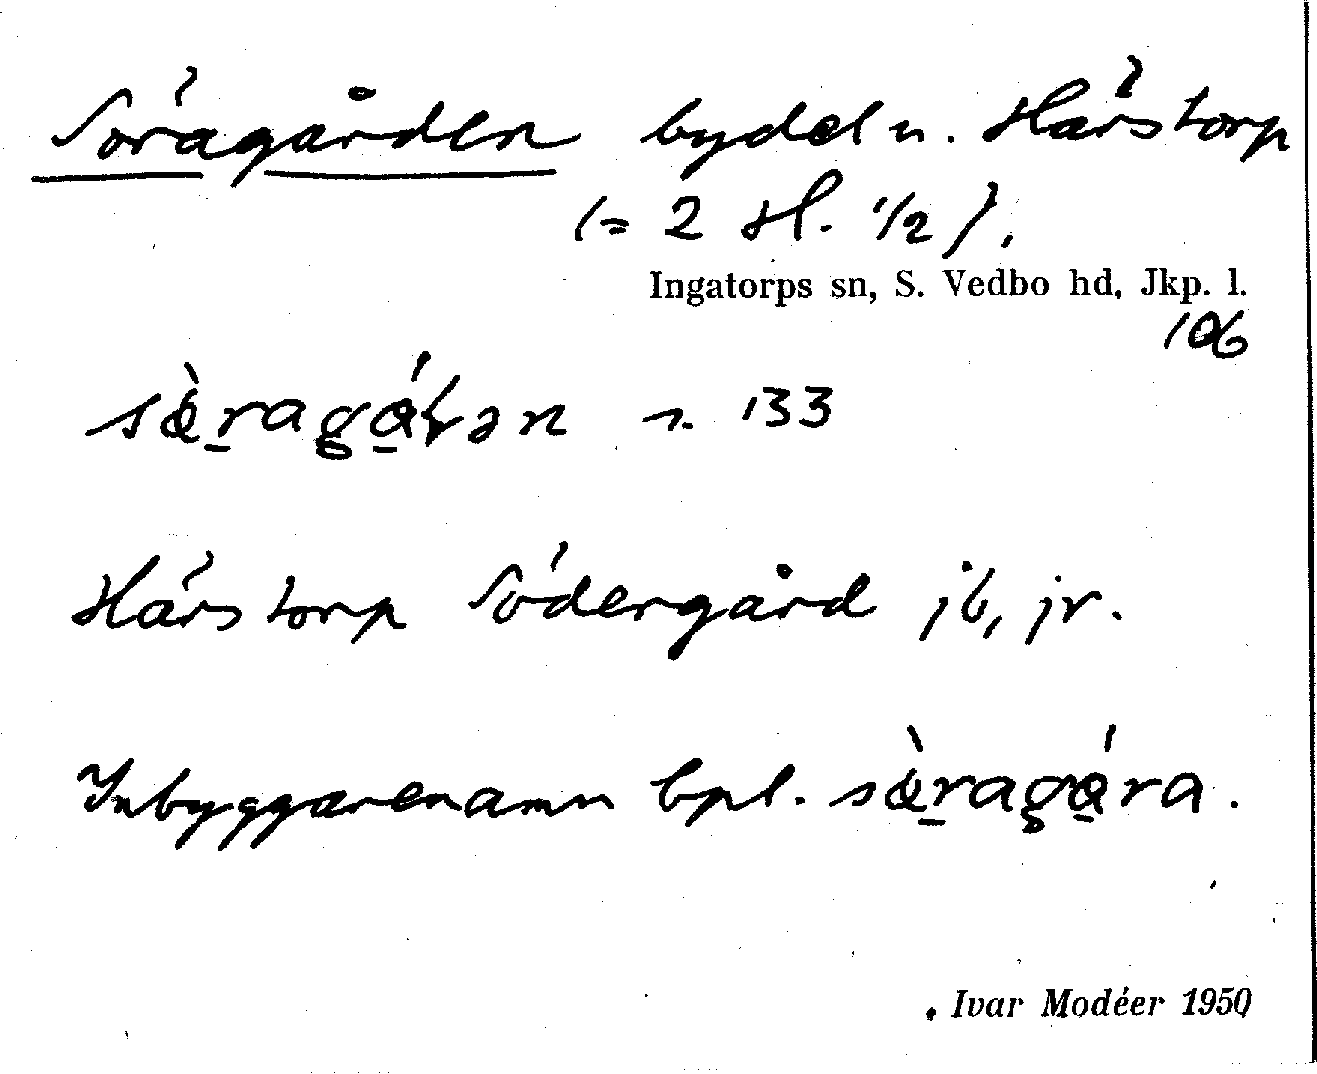 Söragården bydel u. Härstorp
(= 2 hl. 1/2).
Ingatorps sn, S. Vedbo hd, Jkp. l.
106
n. 133
Härstorp Södergård jb, jr.
Inbyggarenamn bpl.
Ivar Modéer 1950